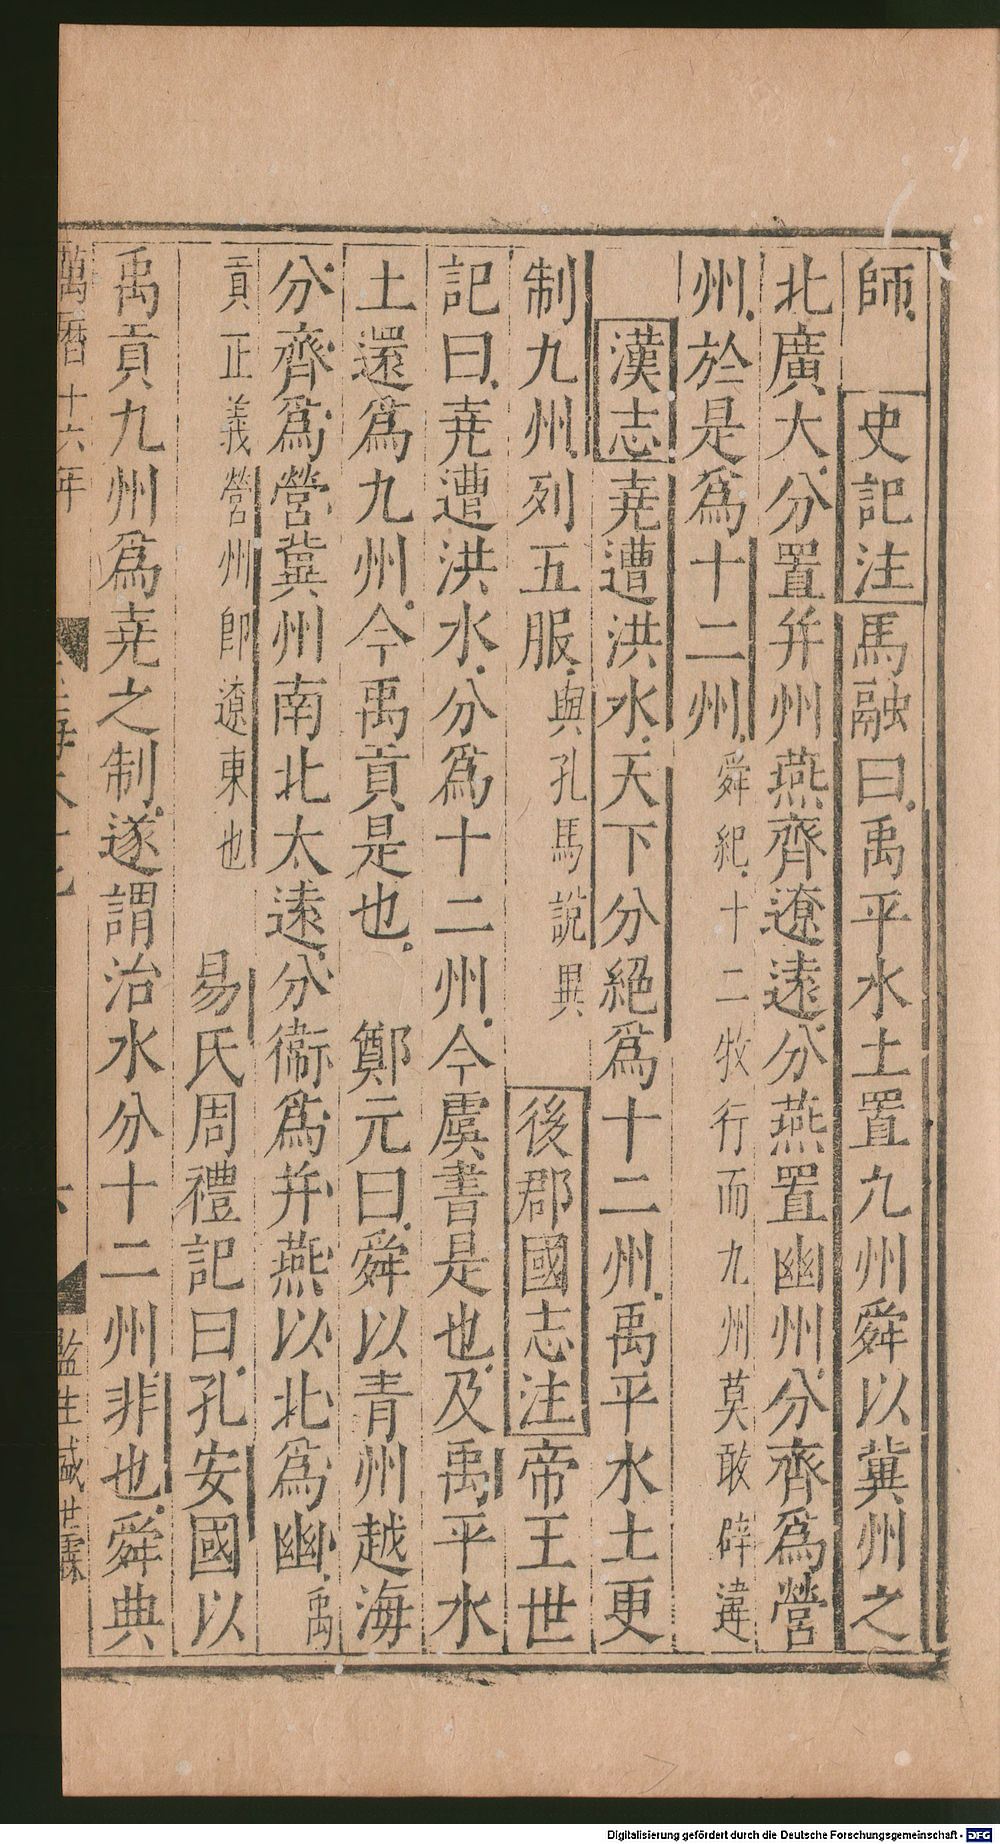 師　史記注馬融曰禹平水土置九州舜以冀州之
北廣大分置幷州燕齊遼遠分燕置幽州分齊爲營
州於是爲十二州舜紀十二牧行而九州莫敢辟違
漢志堯遭洪水天下分絕爲十二州禹平水土更
制九州列五服與孔馬說異　後郡國志注帝王世
記曰堯遭洪水分爲十二州今虞書是也及禹平水
土還爲九州今禹貢是也　鄭元曰舜以青州越海
分齊爲營冀州南北太遠分衞爲并燕以北爲幽禹
貢正義營州卽遼東也　易氏周禮記曰孔安國以
禹貢九州爲堯之制遂謂治水分十二州非也舜典
萬曆十六年
六
監生盛世霖
Digitalisierung gefördert durch die Deutsche Forschungsgemeinschaft - DFG